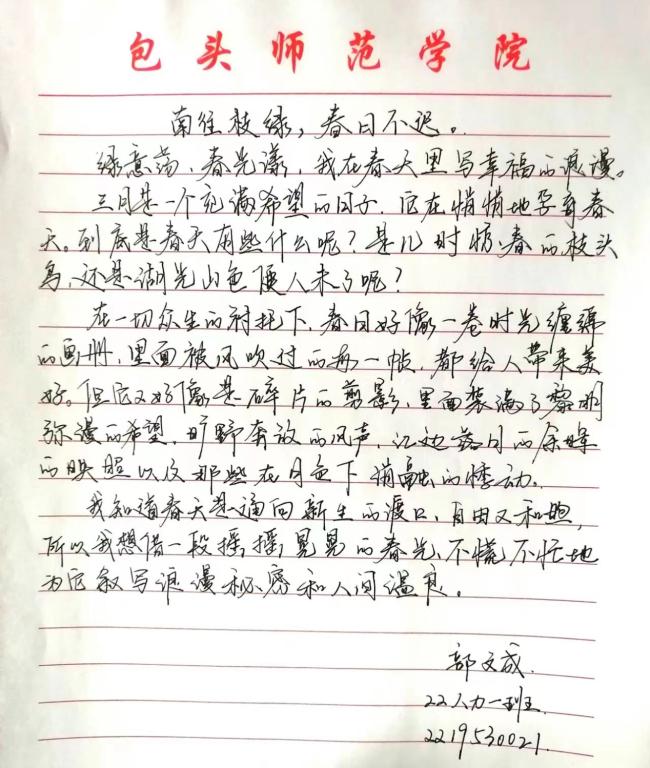 包头师范学院
南往枝绿，春日不迟。
绿意荡，春光漾，我在春天里写幸福的浪漫。
三月是一个充满希望的日子，它在悄悄地孕育春
天。到底是春天有些什么呢？是儿时惊春的枝头
鸟，还是湖光山色使人未了呢？
在一切众生的衬托下，春日好像一卷时光缠绵
的画册，里面被风吹过的每一帧，都给人带来美
好。但它又好像是碎片的剪影，里面装满了黎明
弥漫的希望，旷野奔放的风声，江边落日的余晖
的映照以及那些在月色下消融的悸动。
我知道春天是通向新生的渡口，自由又和煦，
所以我想借一段摇摇晃晃的春光，不慌不忙地
为它叙写浪漫秘密和人间温良。
郭文成
22人力一班
2219530021